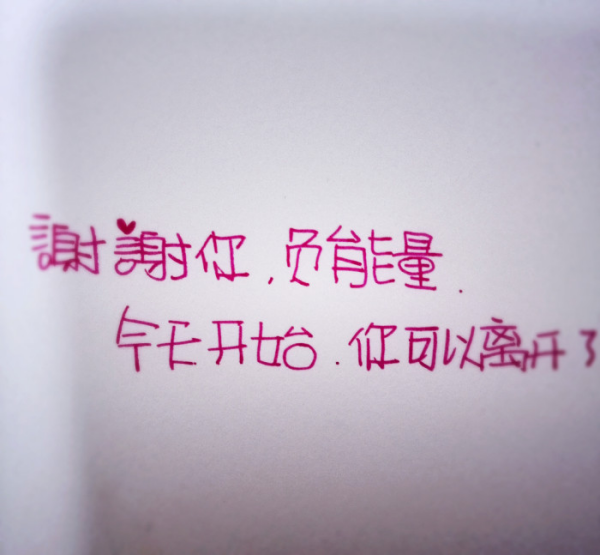 謝謝你,负能量.
今天开始.你可以离开了